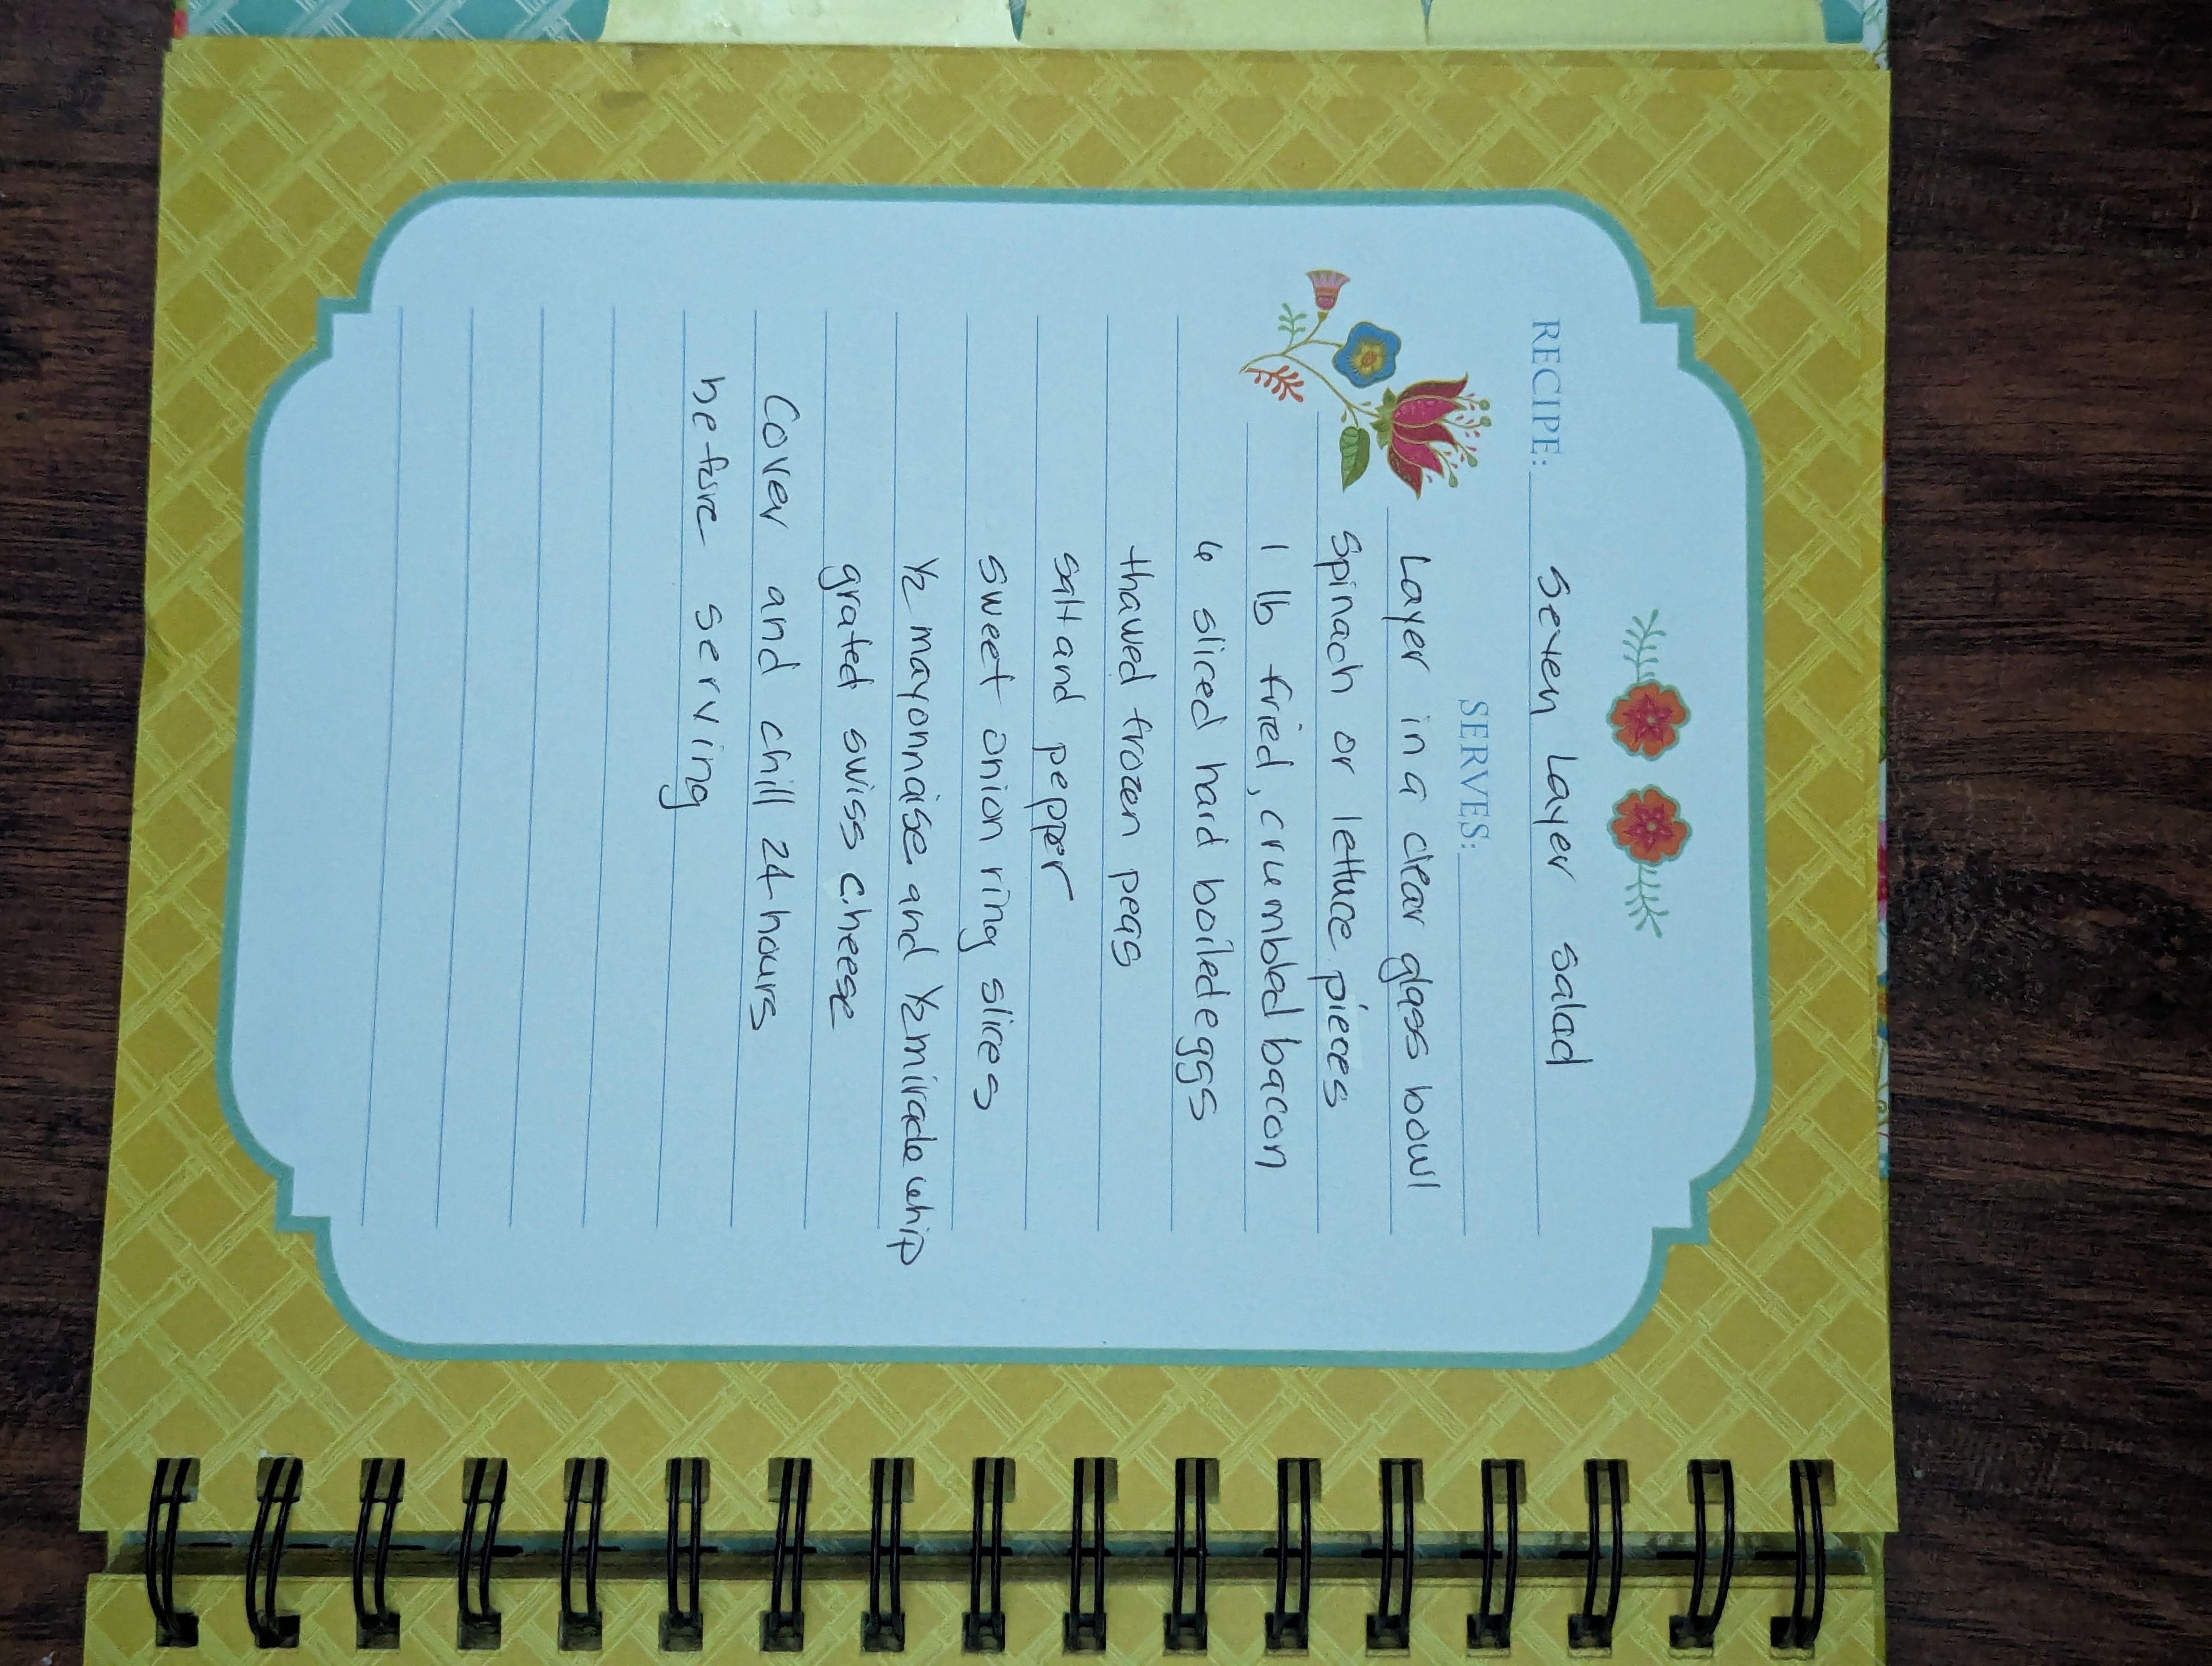 RECIPE: Seven Layer salad
SERVES:
Layer in a clear glass bowl
Spinach or lettuce pieces
1 lb fried, crumbled bacon
6 sliced hard boiled eggs
thawed frozen peas
salt and pepper
sweet onion ring slices
½ mayonnaise and ½ miracle whip
grated swiss cheese
Cover and chill 24 hours
before serving